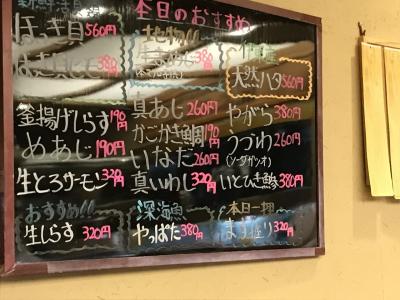 今日のおすすめ
ほっき貝 560円
地物!!
天然ハタ 560円
釜揚げしらす 190円
真あじ 260円
やがら 380円
めあじ 190円
かごかき鯛 190円
うずわ 260円
(ソーダガツオ)
いなだ 260円
生とろサーモン 320円
真いわし 320円
いとひき鯵 380円
おすすめ!!
深海魚
本日一押
生しらす 320円
やっぱた 380円